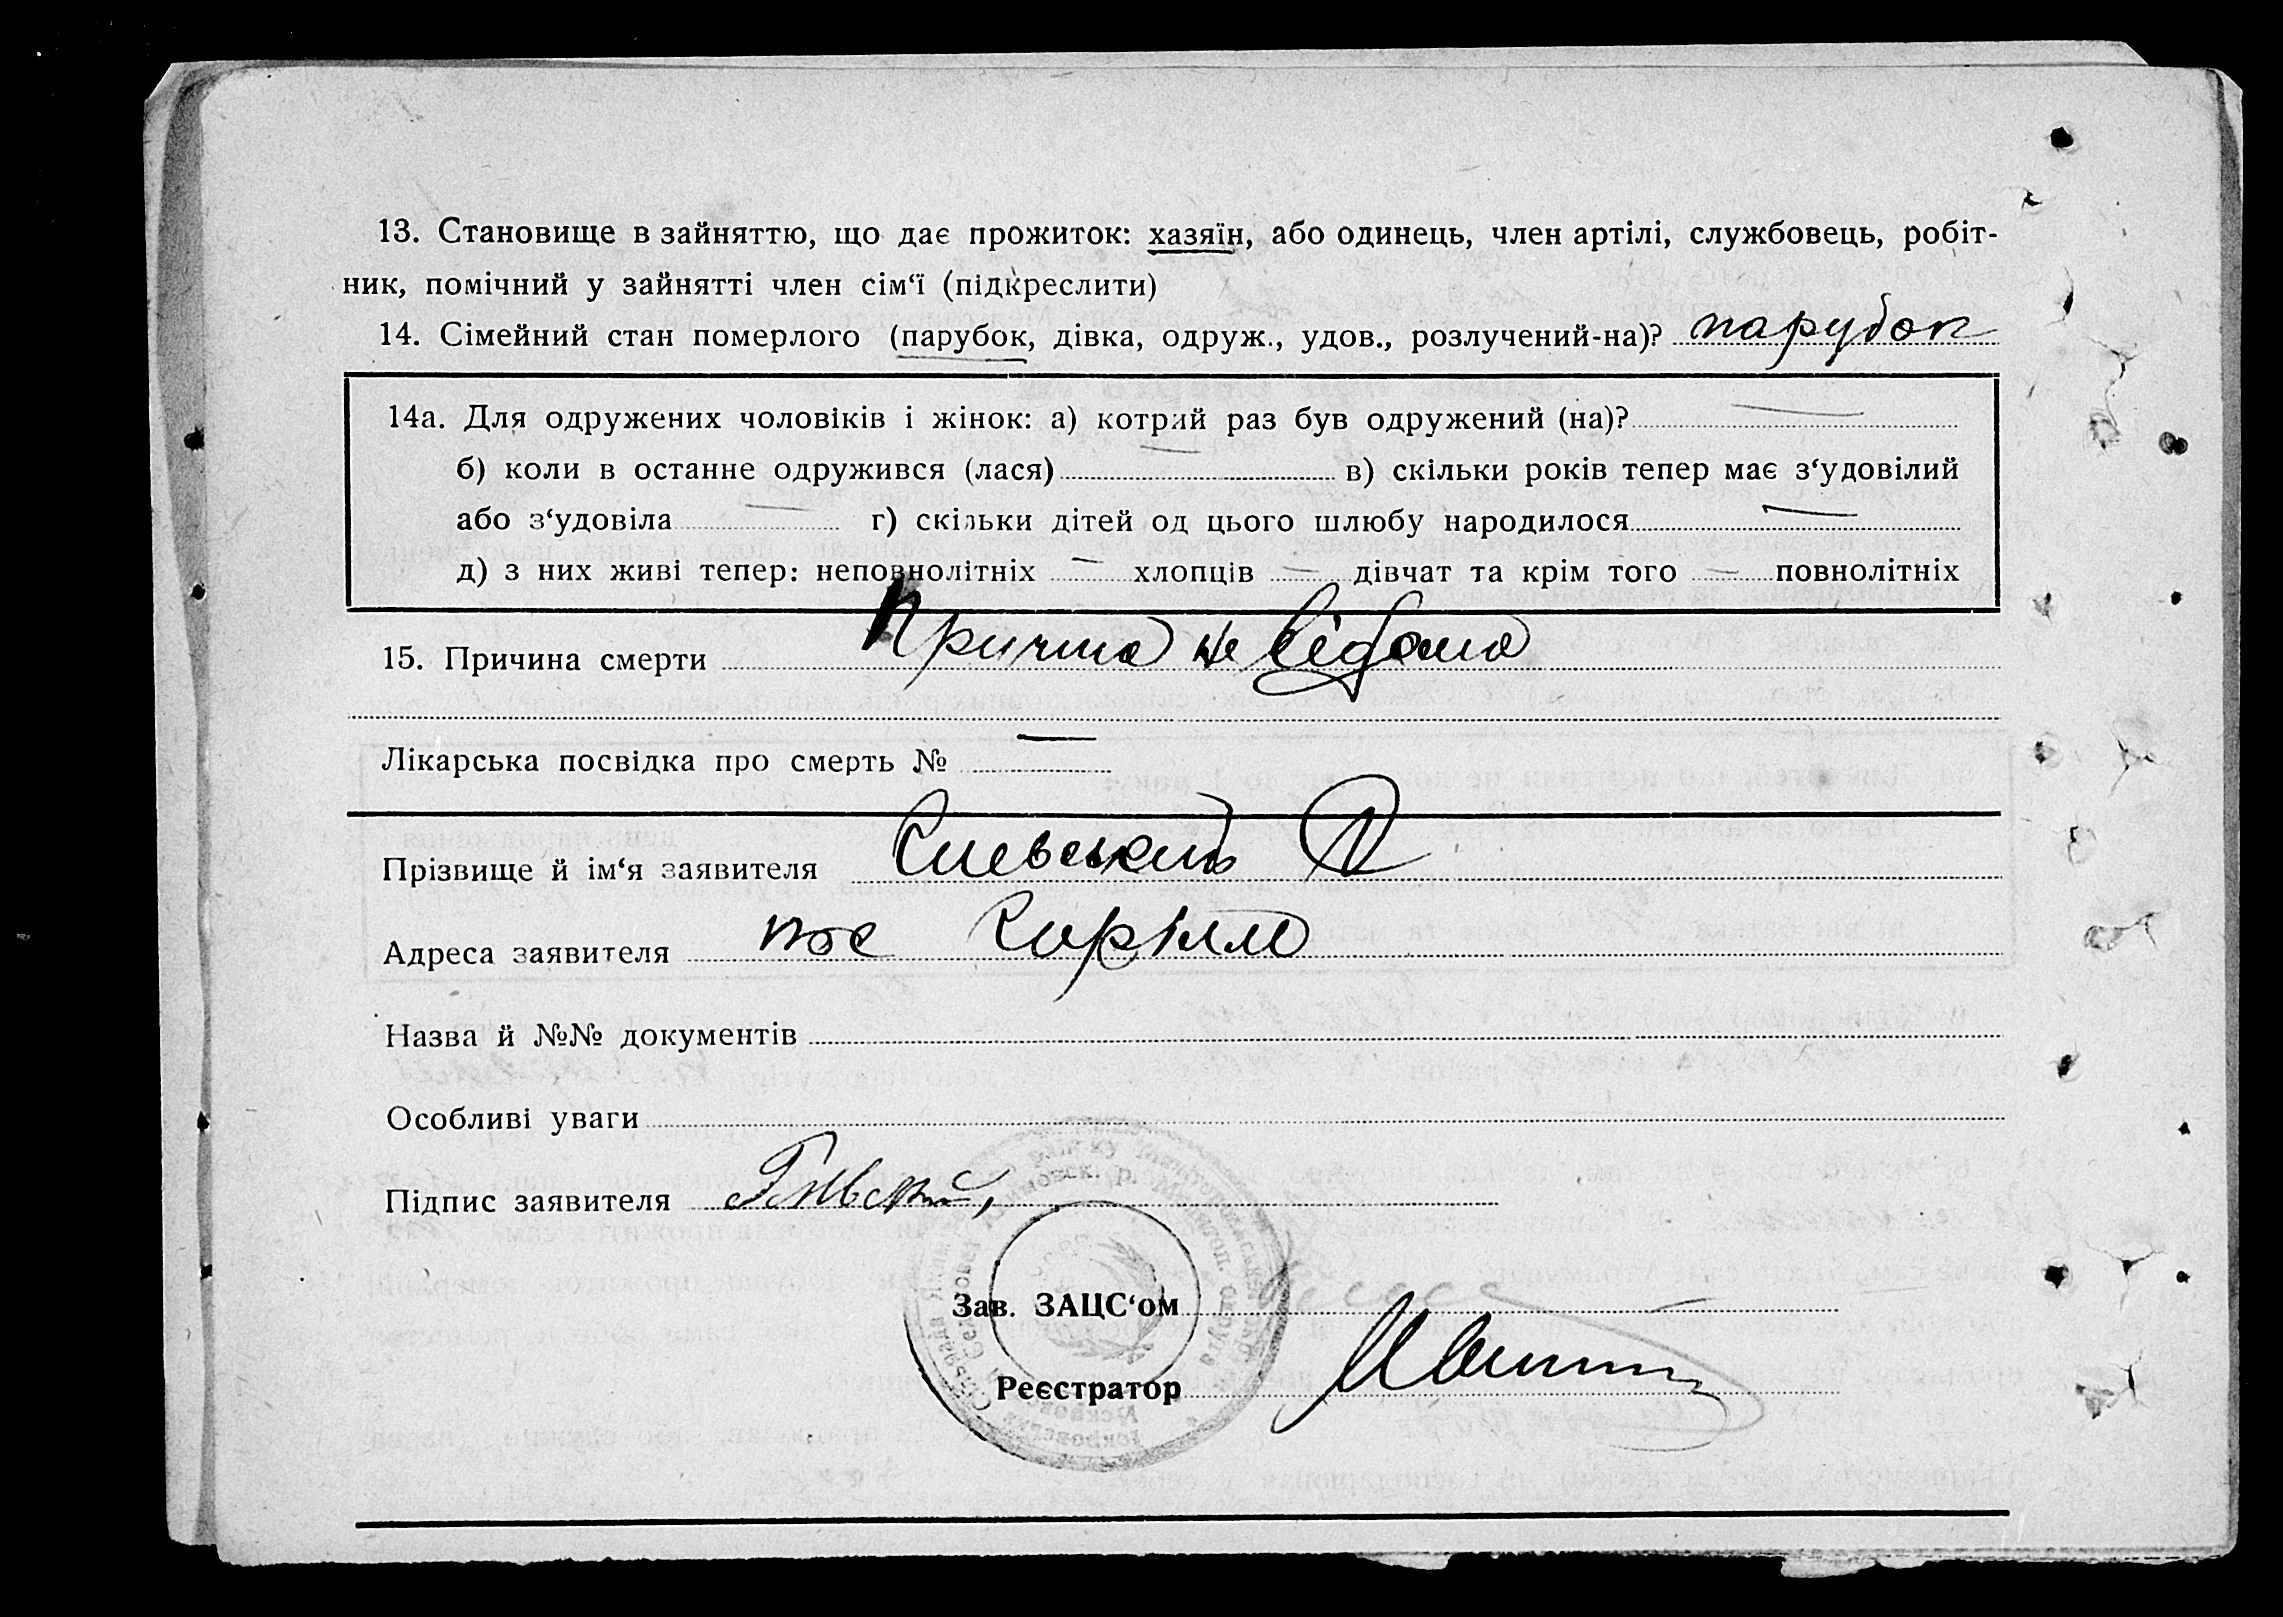 13. Становище в зайняттю, що дає прожиток: хазяїн, або одинець, член артілі, службовець, робіт-
ник, помічний у зайнятті член сім‘ї (підкреслити)
14. Сімейний стан померлого (парубок, дівка, одруж., удов., розлучений-на)? парубок
14а. Для одружених чоловіків і жінок: а) котрий раз був одружений (на)? —
б) коли в останне одружився (лася) — в) скільки років тепер має з‘удовілий
або з‘удовіла — г) скільки дітей од цього шлюбу народилося —
д) з них живі тепер: неповнолітніх — хлопців — дівчат та крім того — повнолітніх
15. Причина смерти Причина не відома
Лікарська посвідка про смерть № —
Прізвище й ім‘я заявителя
Адреса заявителя
Назва й №№ документів
Особливі уваги
Підпис заявителя
Зав. ЗАЦС‘ом
Реєстратор